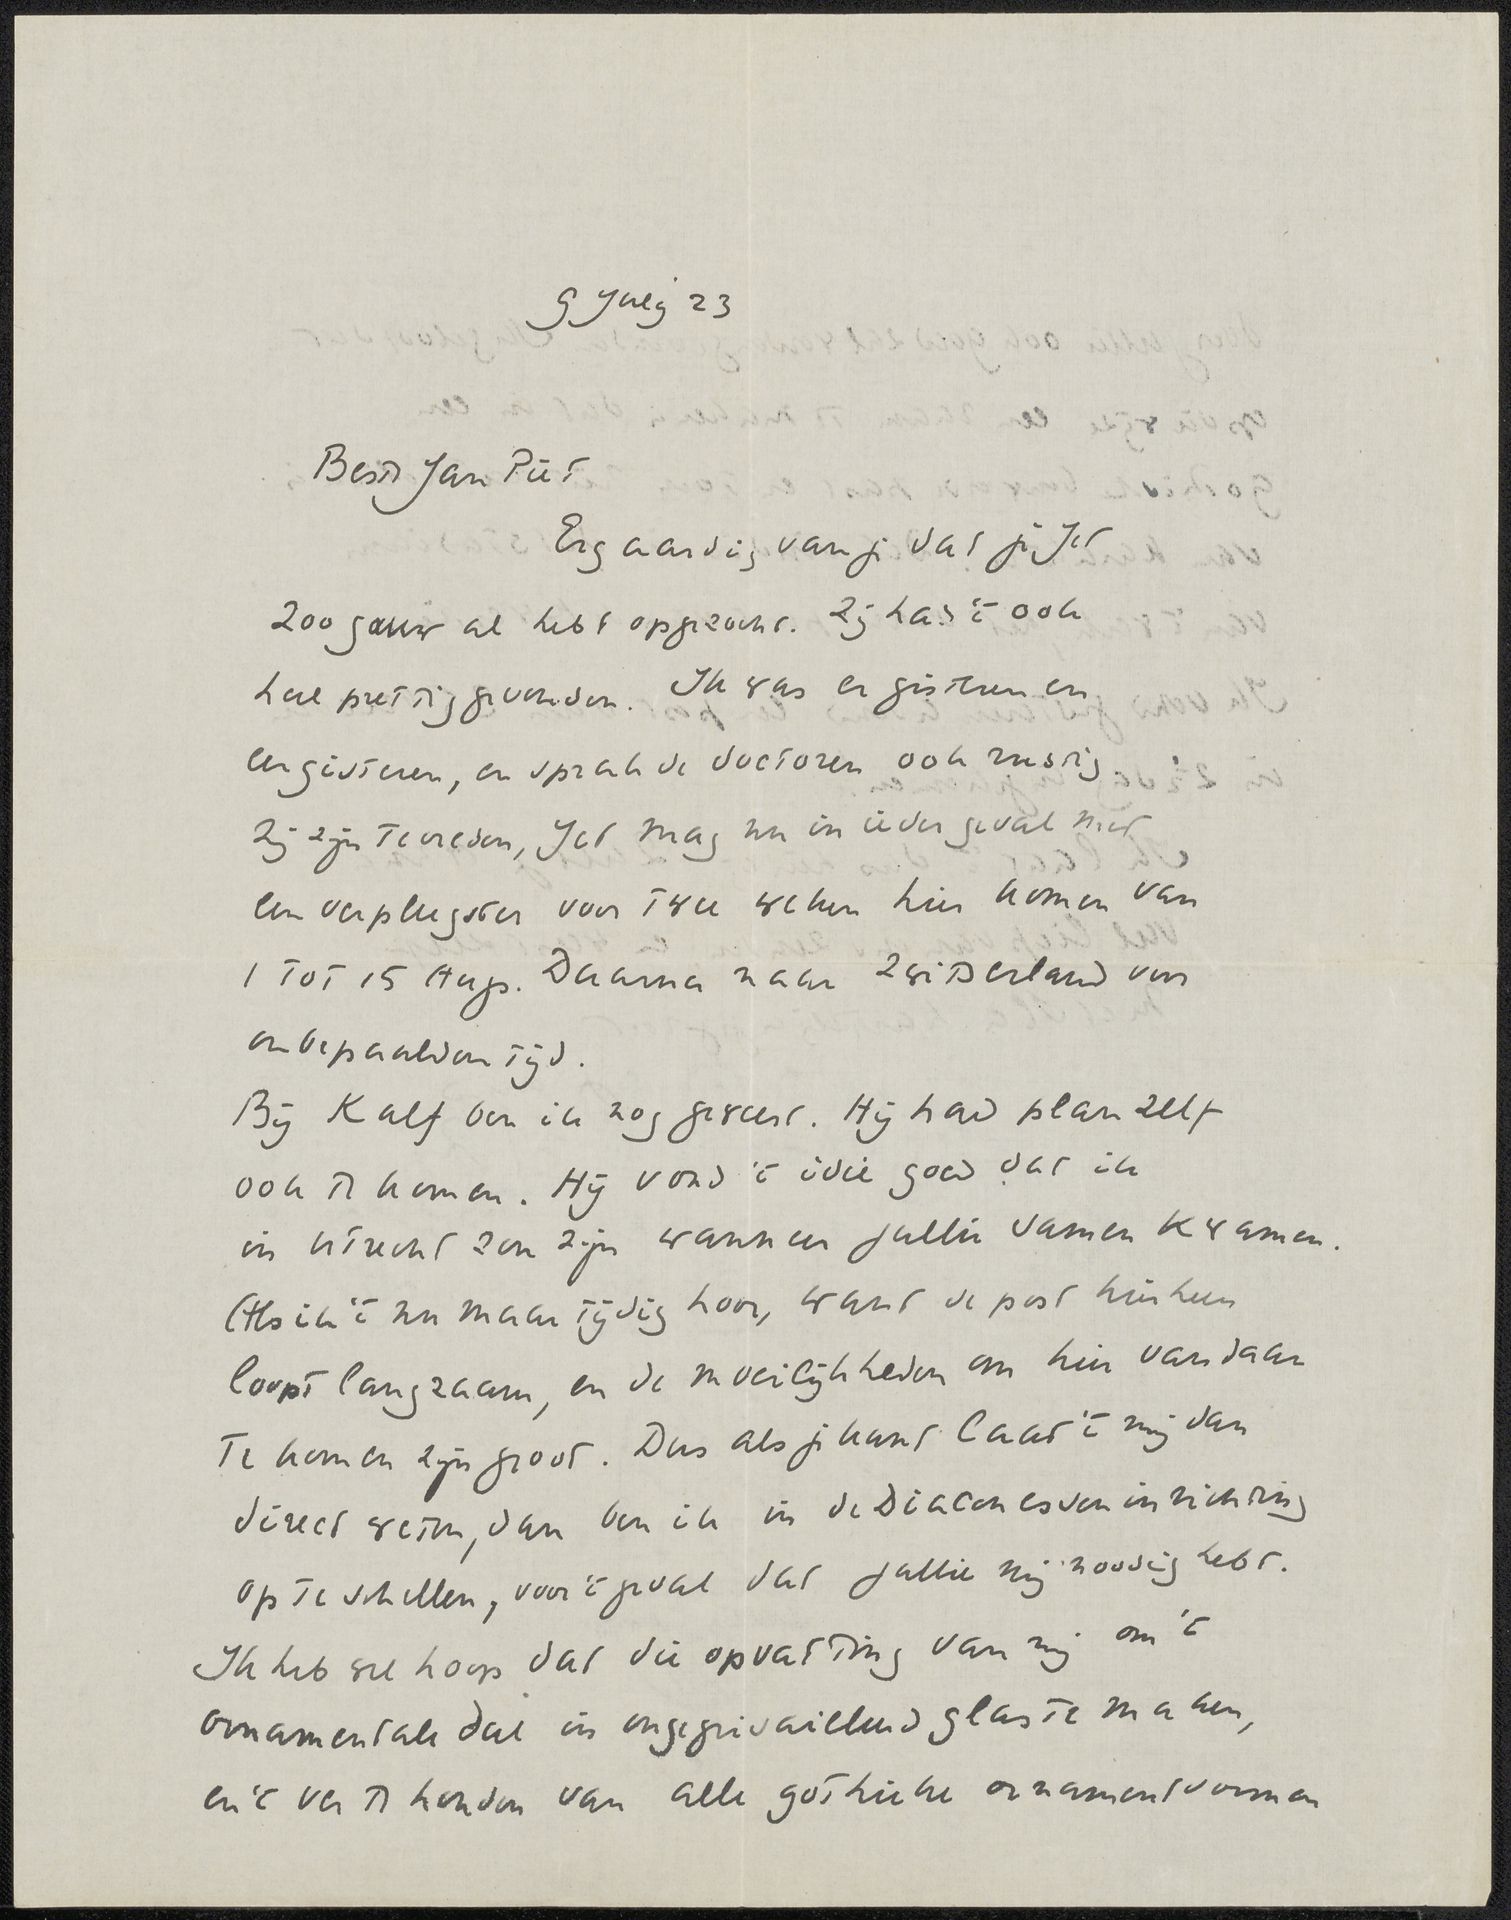 9 July 23
Beste Jan Piet
Erg aardig van je dat je Jet
zoo gauw al hebt opgezocht. Zij had 't ook
heel prettig gevonden. Ik was er gisteren en
eergisteren, en sprak de doctoren ook rustig
Zij zijn tevreden, Jet mag nu in ieder geval met
een verpleegster voor twee weken hier komen van
1 tot 15 Aug. Daarna naar Zwitserland voor
onbepaalden tijd.
Bij Kalf ben ik nog geweest. Hij had plan zelf
ook te komen. Hij vond 't idee goed dat ik
in Utrecht zou zijn wanneer jullie samen kwamen.
Als ik 't nu maar tijdig hoor, want de post hierheen
loopt langzaam, en de moeilijkheden om hier vandaan
te komen zijn groot. Dus als je kunt laat 't mij dan
direct weten, dan ben ik in de Diaconessen inrichting
op te schellen, voor 't geval dat jullie mij noodig hebt.
Ik heb wel hoop dat die opvatting van mij om 't
ornamentale deel in ongegrivailleerd glas te maken,
en 't ver te houden van alle gothieke ornamentvormen